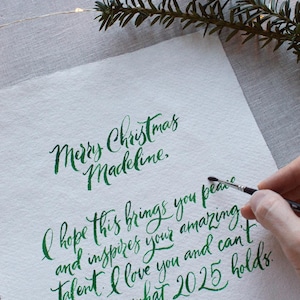 Merry Christmas
Madeline,
I hope this brings you peace
and inspires your amazing
talent. I love you and can't
what 2025 holds.